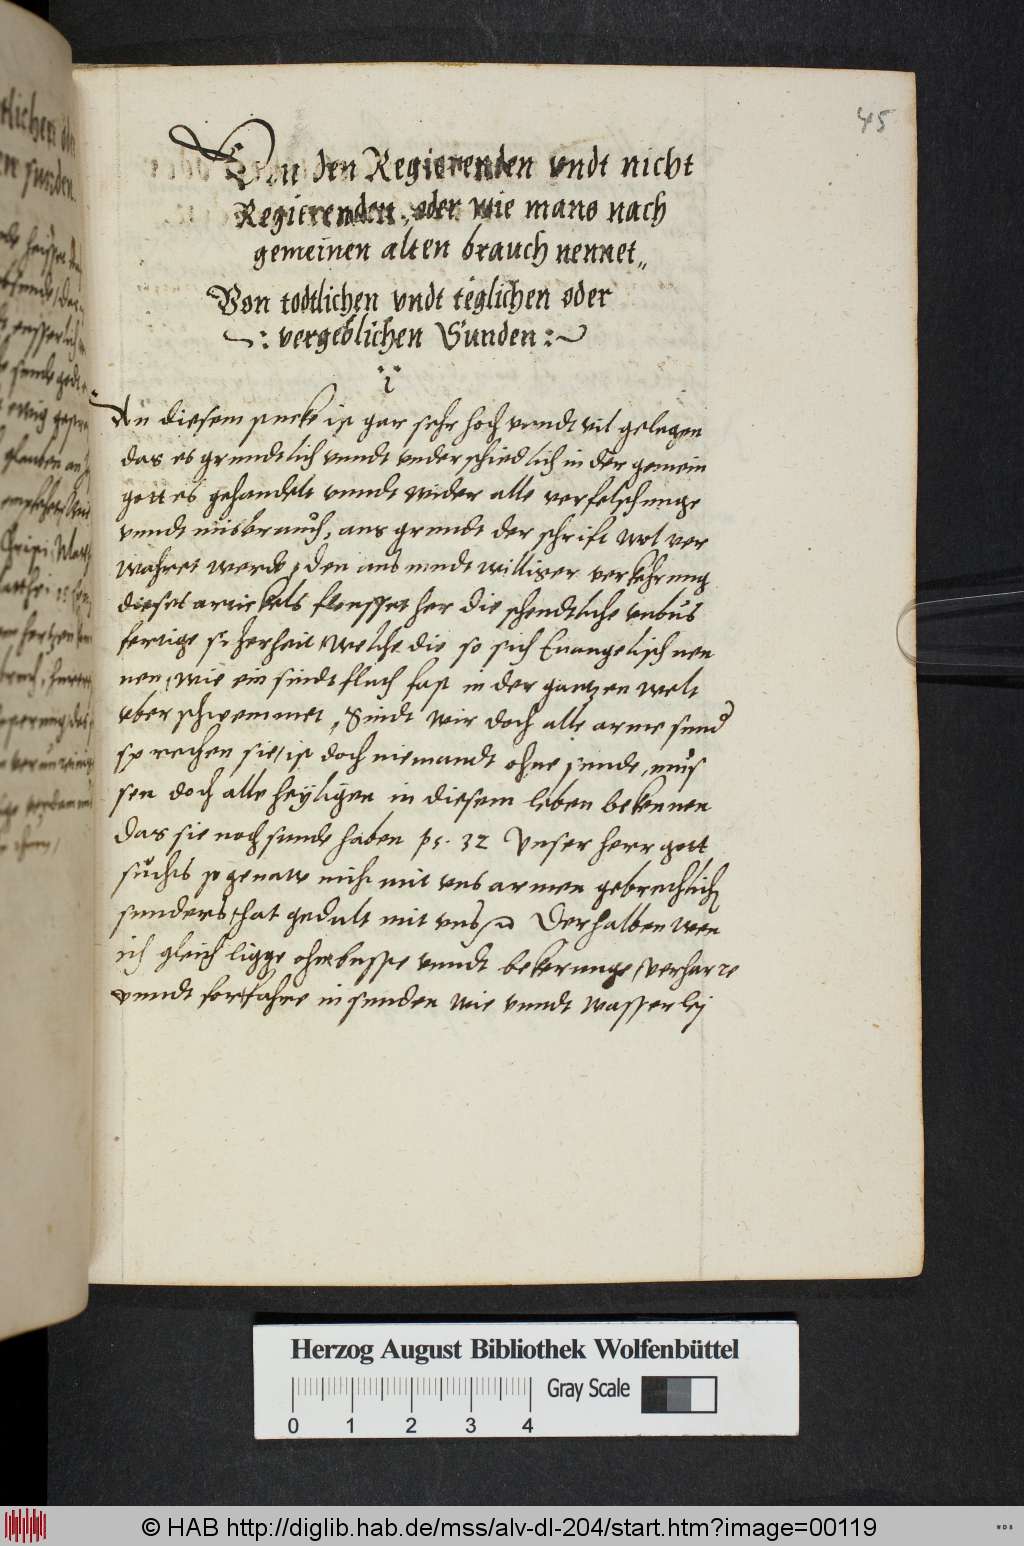 45
Von den Regierenden vndt nicht
Regierenden, oder wie mans nach
gemeinen alten brauch nennet„
Von todtlichen vndt teglichen oder
vergeblichen Sunden
An diesem stucke ist gar sehr hoch vnndt vil gelegen
das es grundtlich vnndt vnderschiedlich in der gemein
gottes gehandelt vnndt wider alle verfelschunge
vnndt misbrauch, aus grundt der schrift wol ver
wahret werde, den aus mudtwilliger verkehrung
dieses artickels fleusset her die schendtliche vnbus
fertige sicherheit, welche die so sich Euangelisch nen
nen, wie ein sindtfluch fast in der gantzen welt
vberschwemmet, Sindt wir doch alle arme sund
sprechen sie, ist doch niemandt ohne sunde, mus
sen doch alle heyligen in diesem leben bekennen
das sie noch sunde haben ps. 32 Vnser herr gott
suchts so genaw nicht mit vns armen gebrechlich
sunders, hat gedult mit vns Derhalben wen
ich gleich ligge ohn busse vnndt bekerunge, verharre
vnndt fortfahre in sunden wie vnndt wasserlej
Herzog August Bibliothek Wolfenbüttel
Gray Scale
0 1 2 3 4
© HAB http://diglib.hab.de/mss/alv-dl-204/start.htm?image=00119